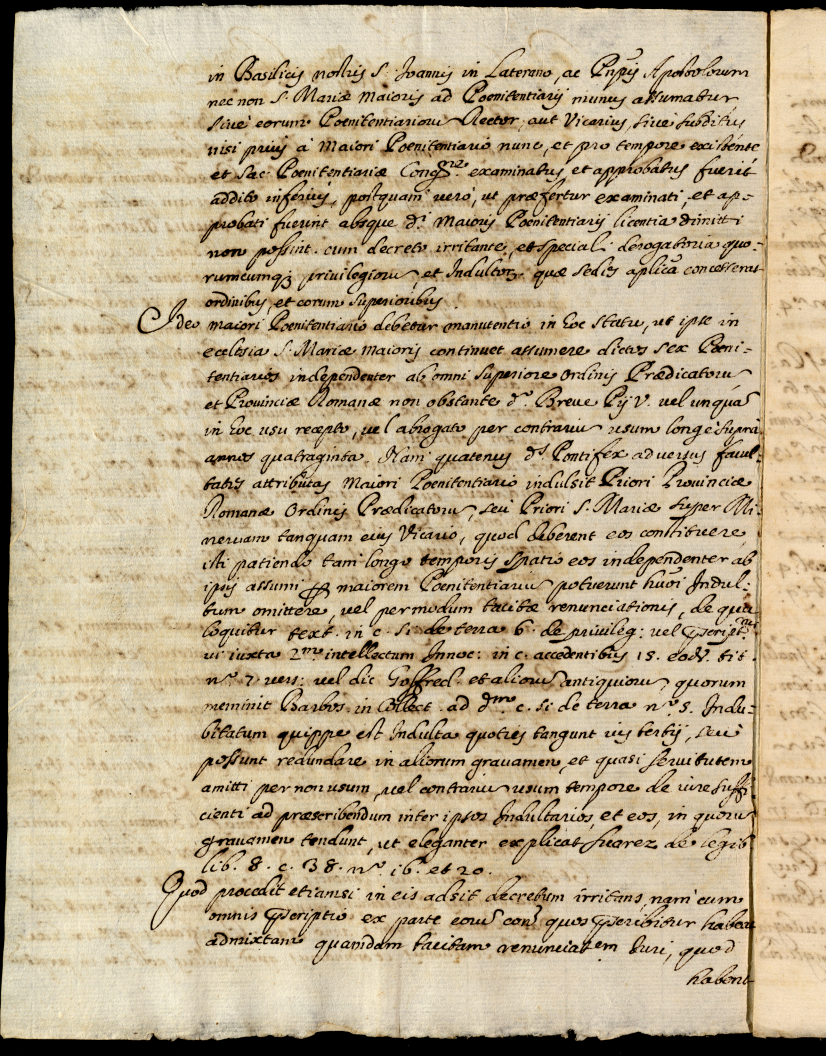 in Basilicis nostris S. Joannis in Laterano, ac Pnpis Apostolorum
nec non S. Mariæ Maioris ad Poenitentiarij munus assumatur
sive eorum Poenitentiarioru Rector, aut Vicarius, sive subditus
nisi prius à Maiori Poenitentiario nunc, et pro tempore existente
et Sac: Poenitentiariæ Congne. examinatus, et approbatus fuerit
addito inferius, postquam vero, ut præfertur examinati, et ap-
probati fuerint absque di. Maioris Poenitentiarij licentia dimitti
non possint. cum decreto irritante, et speciali derogatoria quo-
rumcumq; privilegioru et Indultor, quæ sedes aplica concesserat
ordinibus, et eorum superioribus
Ideo maiori Poenitentiario debetur manutentio in hoc statu, ut ipse in
ecclesia S. Mariæ Maioris continuet assumere dictos sex Poeni-
tentiarios independenter ab omni superiore ordinis Prædicatoru
et Provinciæ Romanæ non obstante do. Breve Pij V. vel unqua
in hoc usu recepto, vel abrogato per contrariu usum longe supra
annos quatraginta. Nam quatenus ds. Pontifex adversus facul-
tates attributas Maiori Poenitentiario indulsit Priori Provinciæ
Romanæ Ordinis Prædicatoru, seu Priori S. Mariæ super Mi-
nervam tanquam eius Vicario, quod deberent eos constituere,
isti patiendo tam longo temporis spatio eos independenter ab
ipsis assumi per maiorem Poenitentiariu potuerunt huoi Indul-
tum omittere, vel per modum tacitæ renunciationis, de qua
loquitur text. in c. si de terra 6. de privileg: vel pscriptnis
vi iuxta 2m. intellectum Innoc: in c. accedentibus 15. eod. tit.
no. 7. vers: vel dic Goffred. et alioru antiquioru, quorum
meminit Barbos. in Collect. ad dm. c. si de terra no. 5. Indu-
bitatum quippe est Indulta quoties tangunt ius tertij, seu
possunt redundare in aliorum gravamen, et quasi servitutem
amitti per non usum, vel contrariu usum tempore de iure suffi-
cienti ad præscribendum inter ipsos Indultarios, et eos, in quoru
gravamen tendunt, ut eleganter explicat Suarez de legib
lib. 8. c. 38. no. 16. et 20.
Quod procedit etiamsi in eis adsit decretum irritans, nam cum
omnis pscriptio ex parte eoru con quos pscribitur habeat
admixtam quamdam tacitam renunciatem Iuri, quod
habent